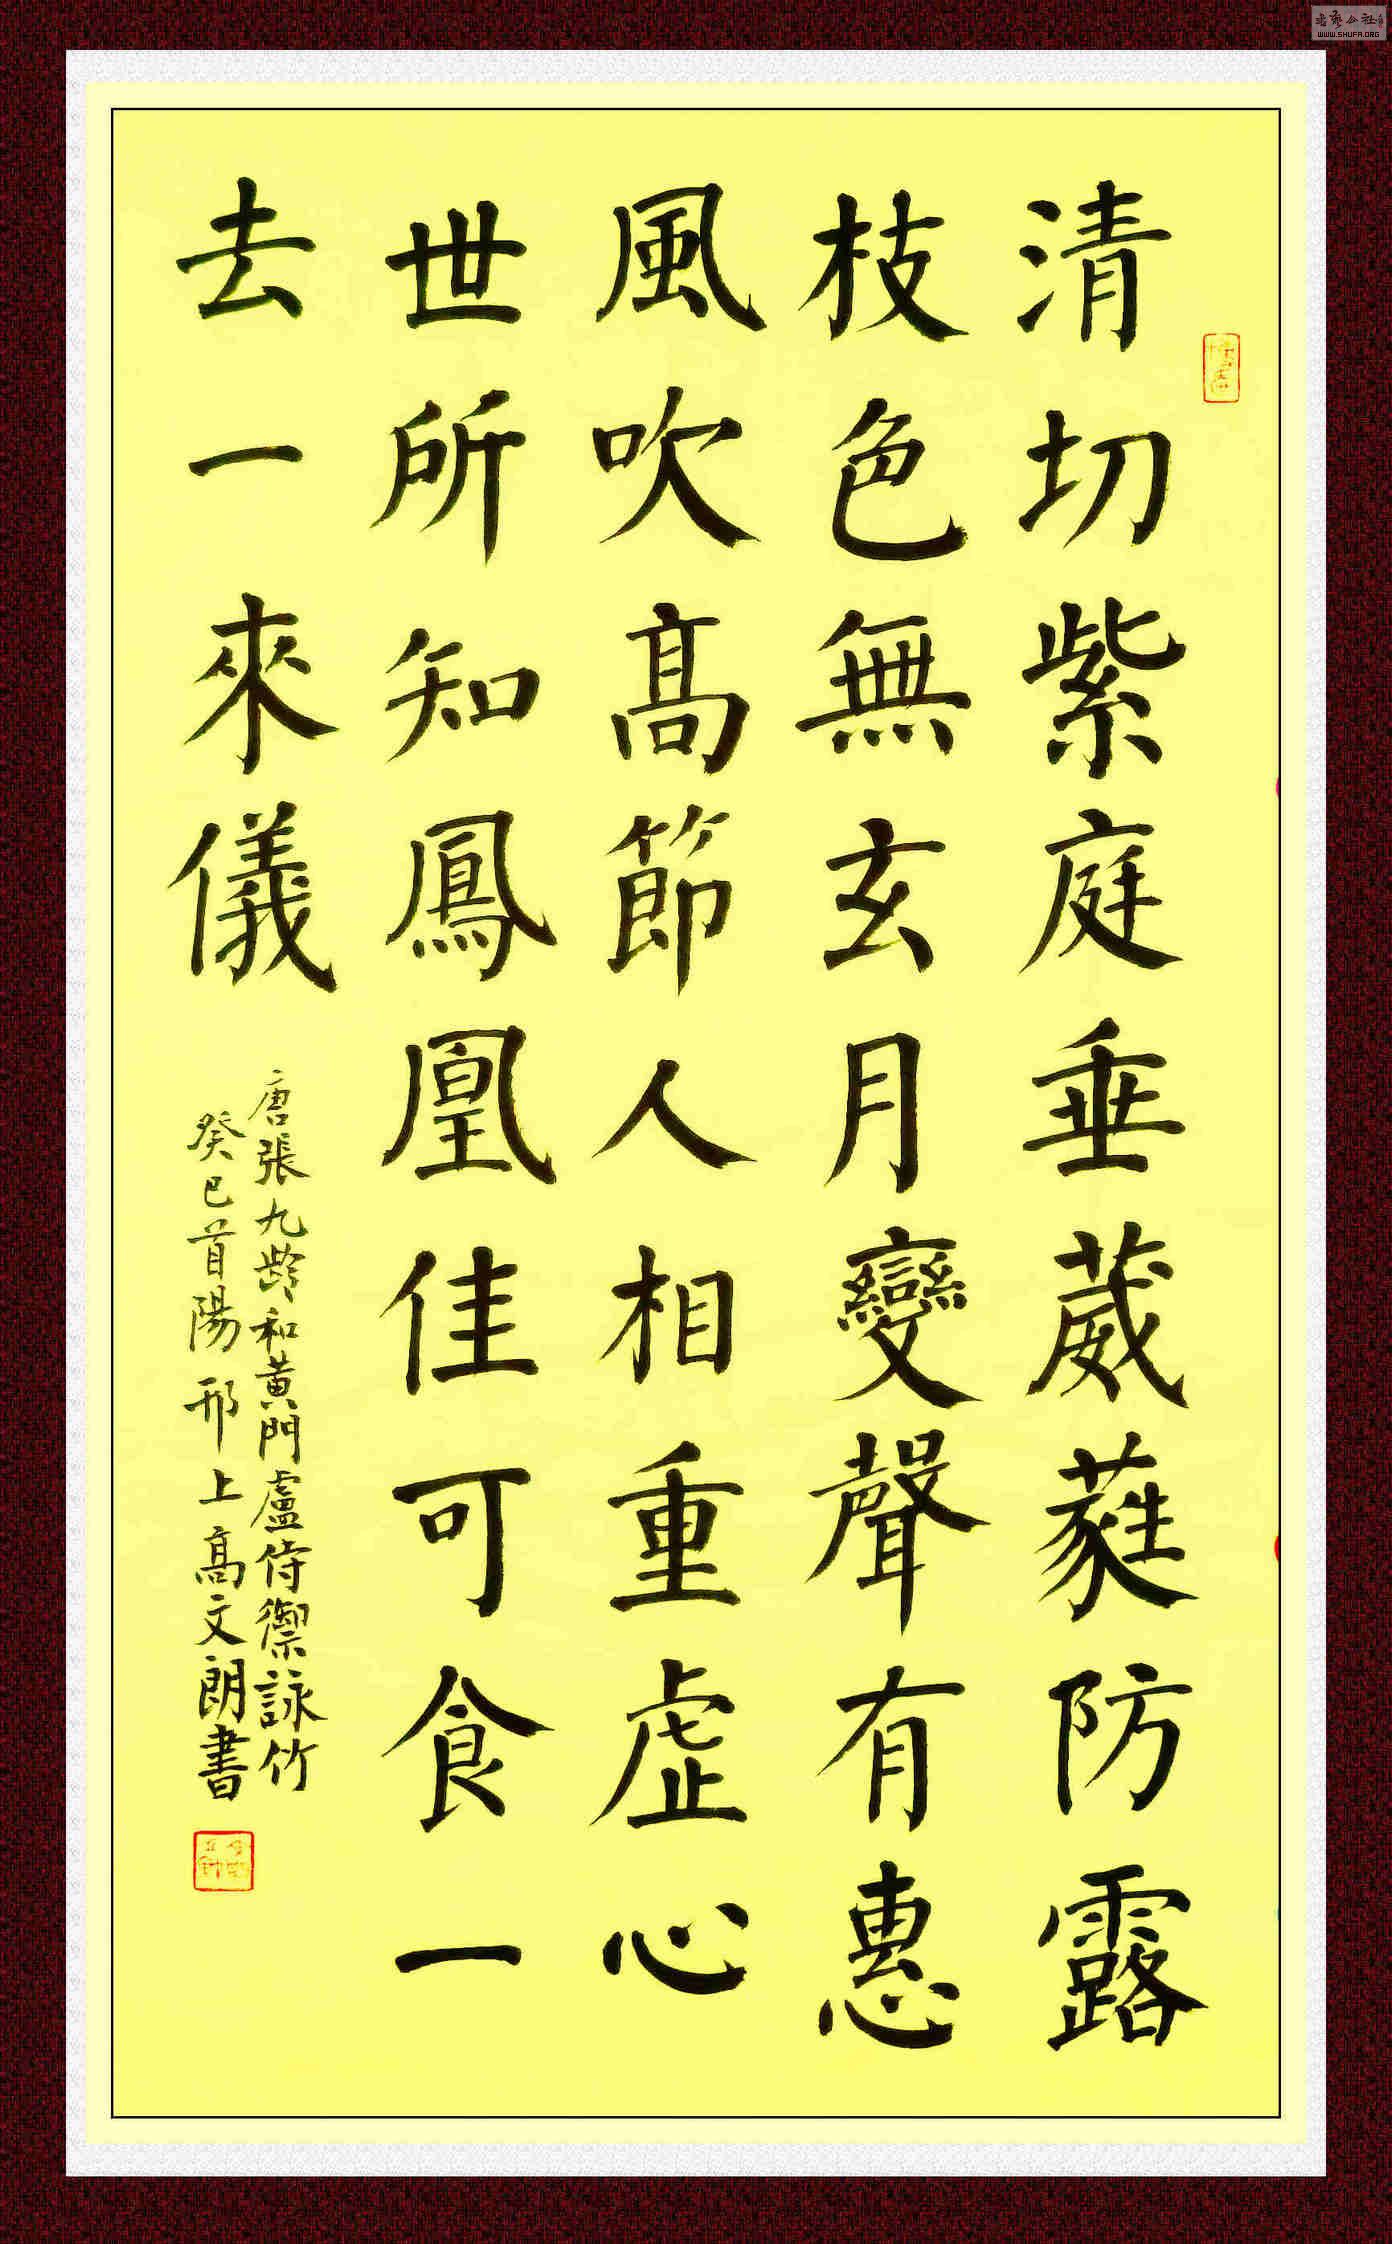 清切紫庭垂葳蕤防露
枝色無玄月變聲有惠
風吹高節人相重虛心
世所知鳳凰佳可食一
去一來儀
唐張九齡和黃門盧侍禦詠竹
癸巳首陽邢上高文朗書
WWW.SHUFA.ORG